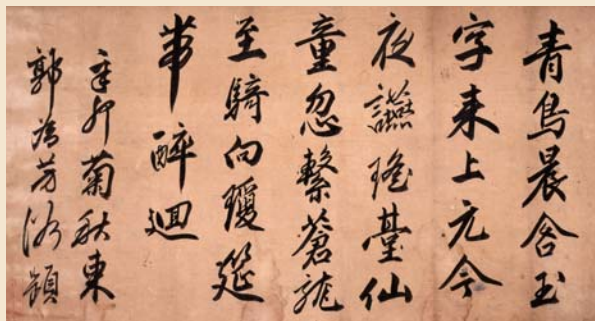 青鳥晨含玉
字来上元今
夜讌瑤臺仙
童忽繫蒼龍
至騎向瓊筵
帶醉迴
辛卯菊秋東
郭為芳